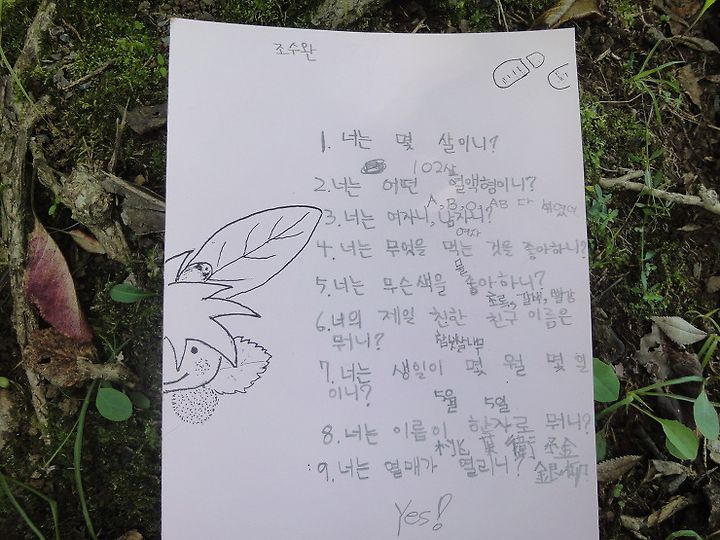 조수완
1. 너는 몇 살이니?
102살
2. 너는 어떤 혈액형이니?
A, B, O, AB 다 섞였어
3. 너는 여자니, 남자니?
여자
4. 너는 무엇을 먹는 것을 좋아하니?
물
5. 너는 무슨색을 좋아하니?
초록, 갈색, 빨강
6. 너의 제일 친한 친구 이름은
뭐니?
7. 너는 생일이 몇 월 몇 일
이니?
5월 5일
8. 너는 이름이 한자로 뭐니?
葉 衛
9. 너는 열매가 열리니? 銀柳
Yes!